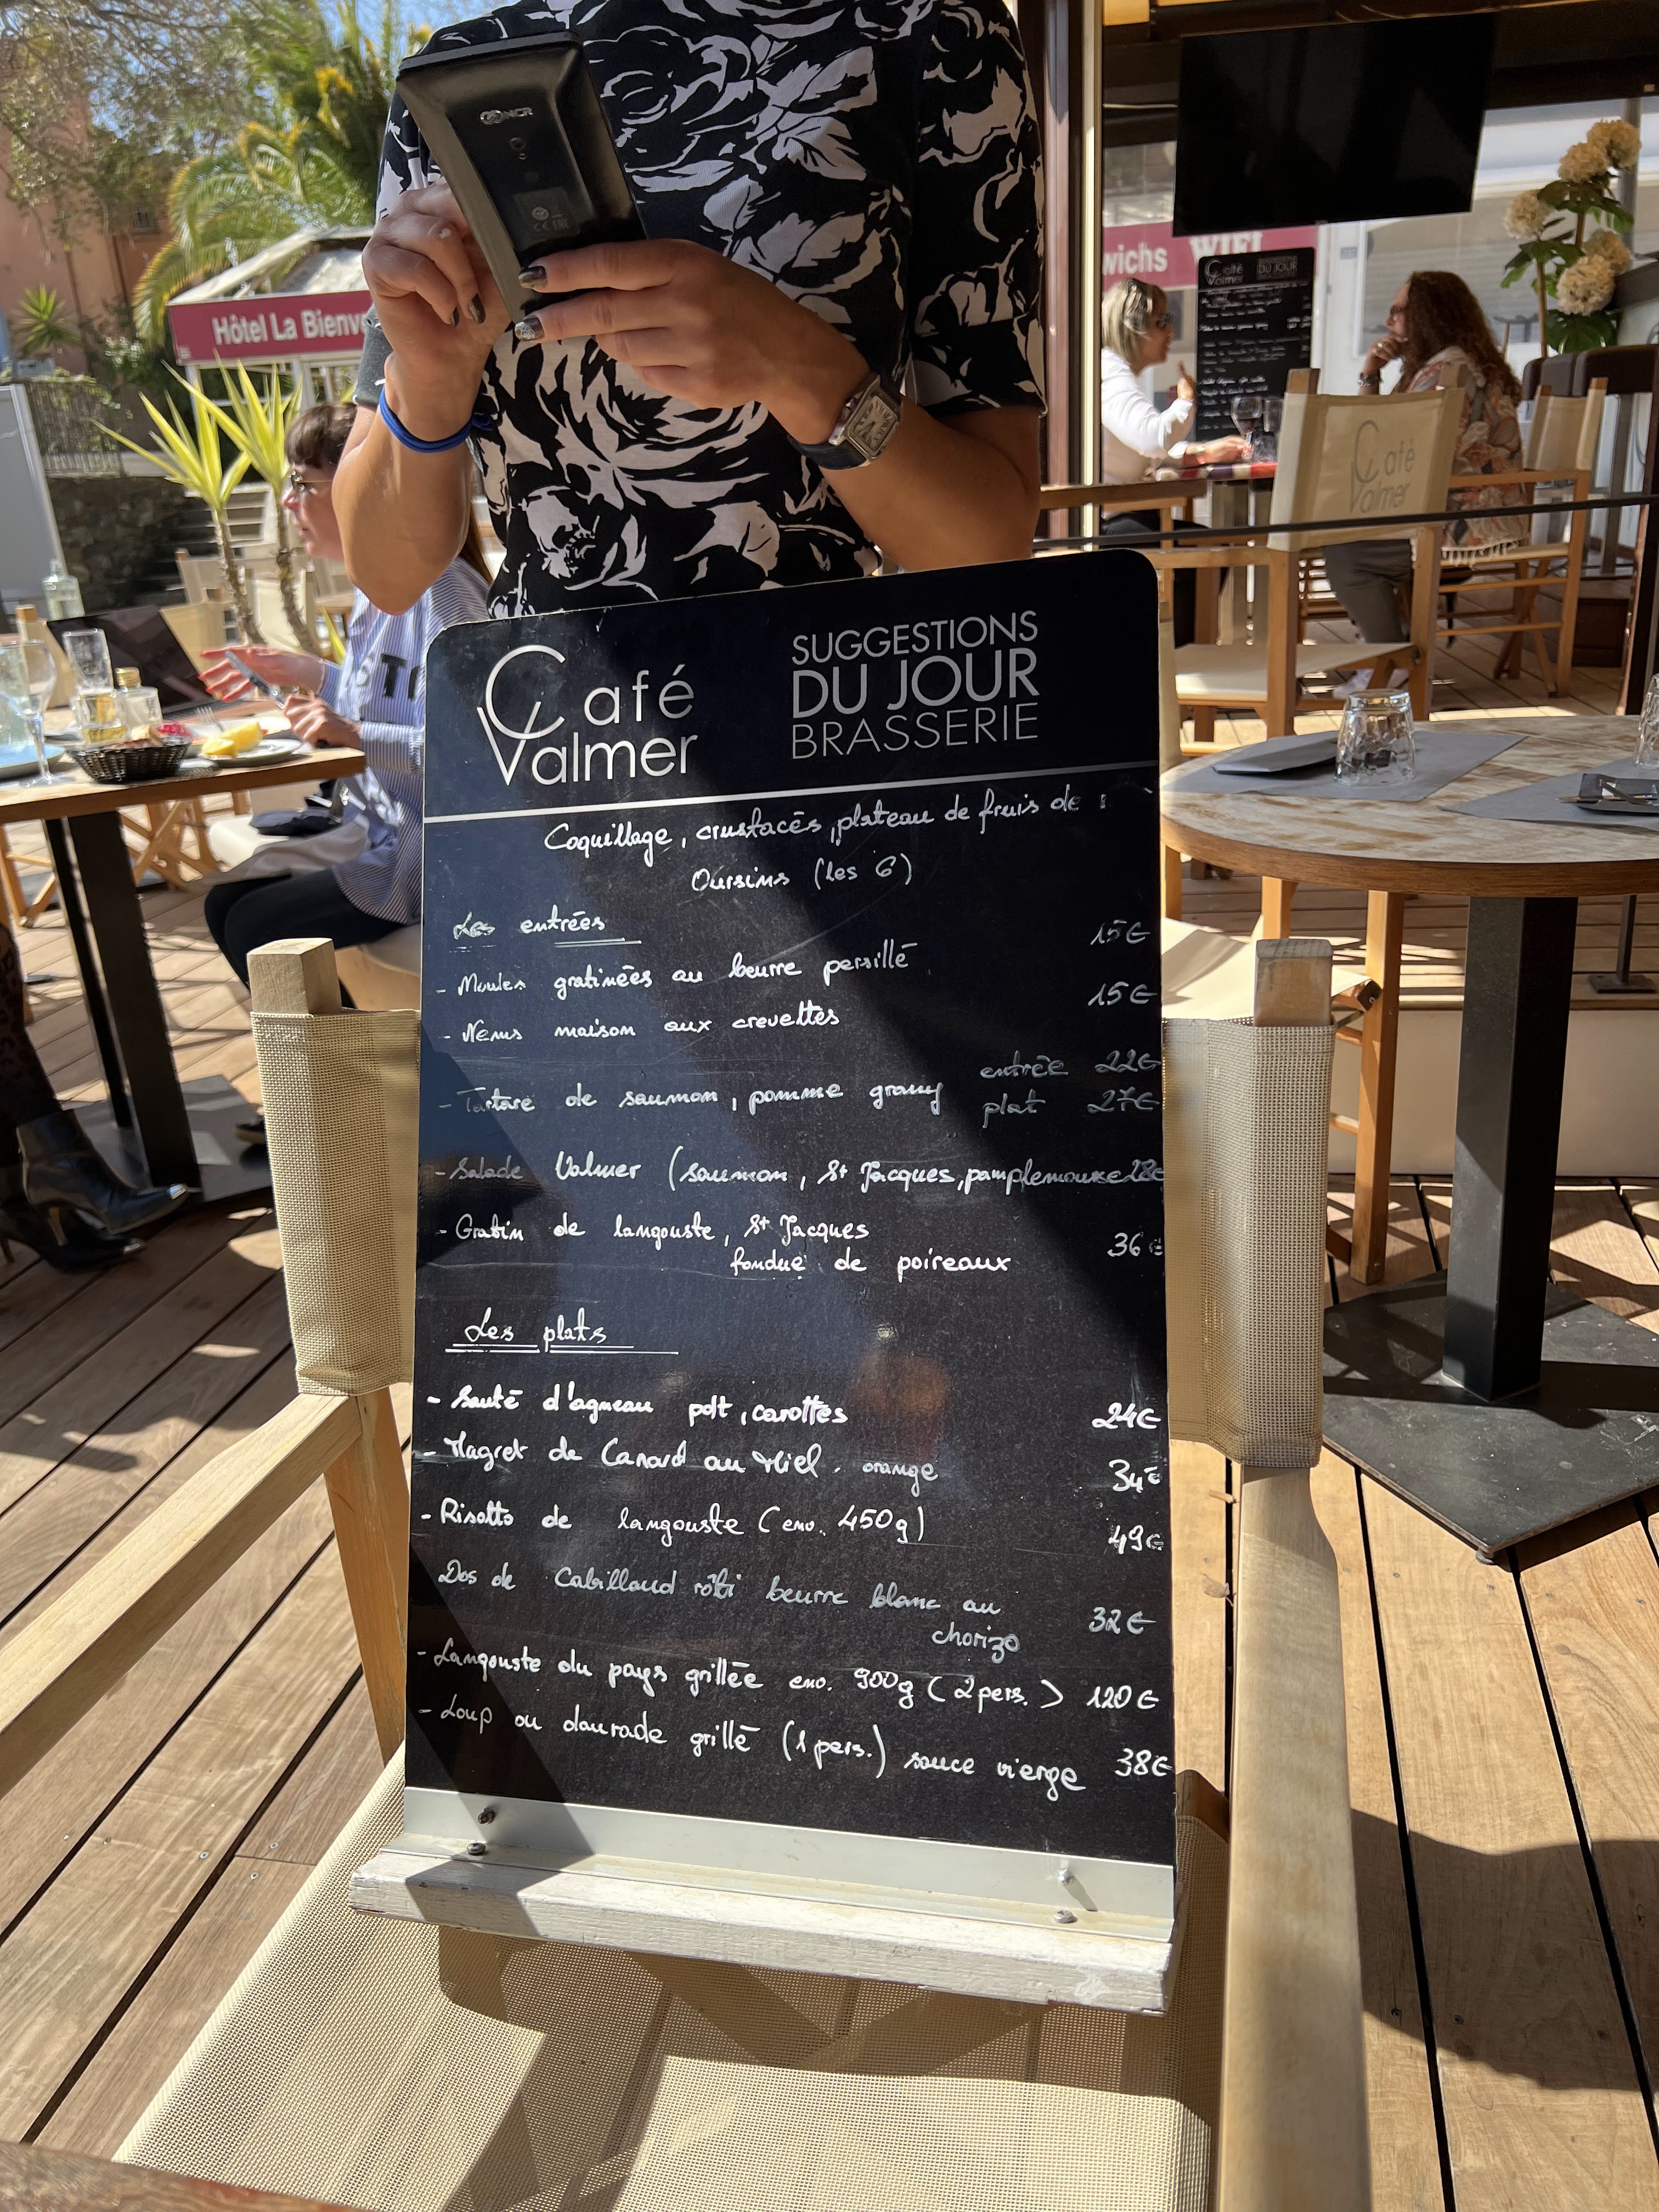 NCR
Hôtel La Bienve
wichs WIFI
Café
Valmer
SUGGESTIONS
DU JOUR
Café
Valmer
Café
Valmer
SUGGESTIONS
DU JOUR
BRASSERIE
Coquillage, crustacés, plateau de fruis de
Oursins (les 6)
Les entrées
- Moules gratinées au beurre persillé 15€
- Nems maison aux crevettes 15€
- Tartare de saumon, pomme granny entrée 22€
plat 27€
- Salade Valmer (saumon, St Jacques, pamplemousse 28€
- Gratin de langouste, St Jacques
fondue de poireaux 36€
Les plats
- Sauté d'agneau pdt, carottes 24€
- Magret de Canard au Miel. orange 34€
- Risotto de langouste (env. 450g) 49€
Dos de Cabillaud rôti beurre blanc au
chorizo 32€
- Langouste du pays grillée env. 900g (2 pers.) 120€
- Loup ou daurade grillé (1 pers.) sauce vierge 38€